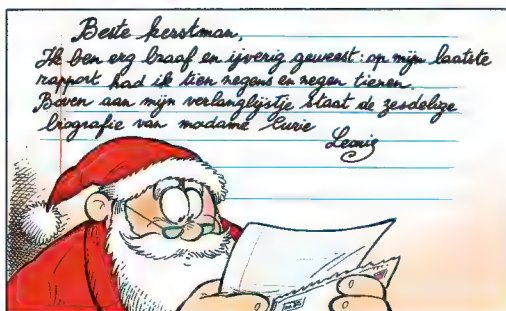 Beste kerstman,
Ik ben erg braaf en ijverig geweest: op mijn laatste
rapport had ik tien negens en negen tienen.
Boven aan mijn verlanglijstje staat de zesdelige
biografie van madame Curie
Leonie